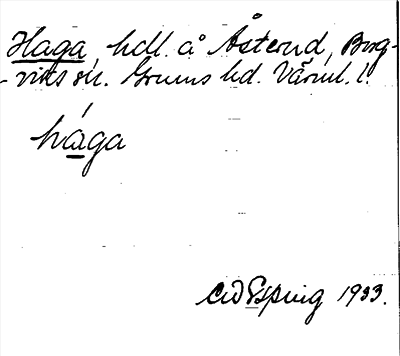 Haga, hdl. å Åsterud, Borg-
-viks sn. Grums hd. Värml. l.
hága
CWEsping 1933.